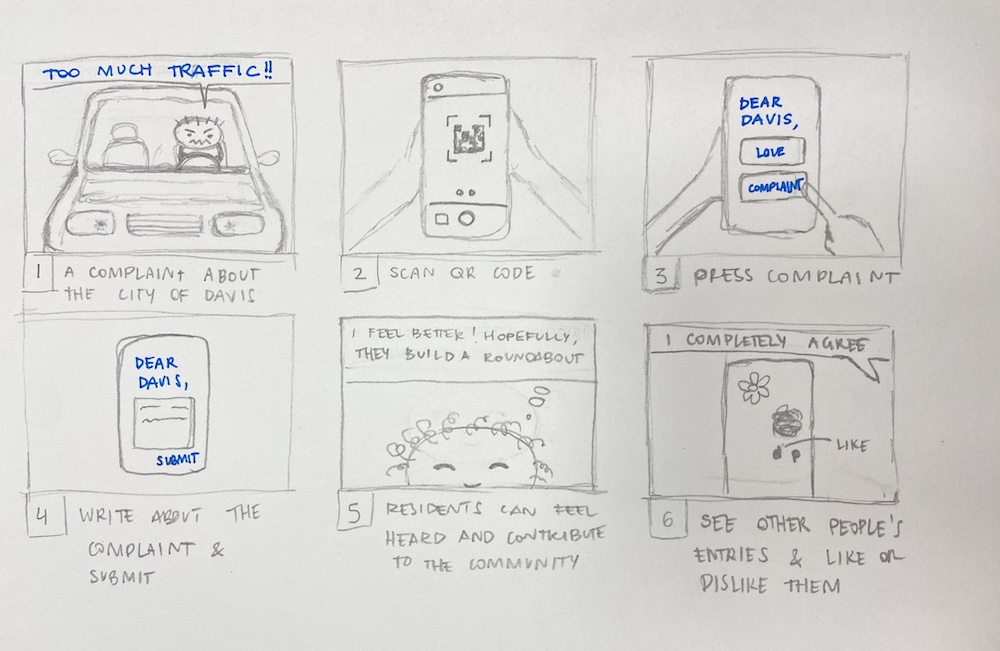 TOO MUCH TRAFFIC!!
1 A COMPLAINT ABOUT
THE CITY OF DAVIS
2 SCAN QR CODE
DEAR
DAVIS,
LOVE
COMPLAINT
3 PRESS COMPLAINT
DEAR
DAVIS,
SUBMIT
4 WRITE ABOUT THE
COMPLAINT &
SUBMIT
I FEEL BETTER! HOPEFULLY,
THEY BUILD A ROUNDABOUT
5 RESIDENTS CAN FEEL
HEARD AND CONTRIBUTE
TO THE COMMUNITY
I COMPLETELY AGREE
LIKE
6 SEE OTHER PEOPLE'S
ENTRIES & LIKE OR
DISLIKE THEM